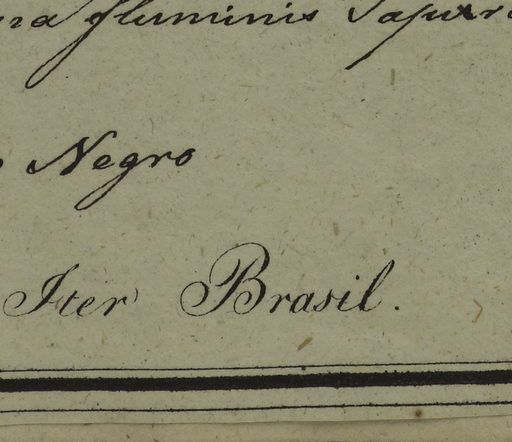 fluminis Japura
Negro
Iter Brasil.